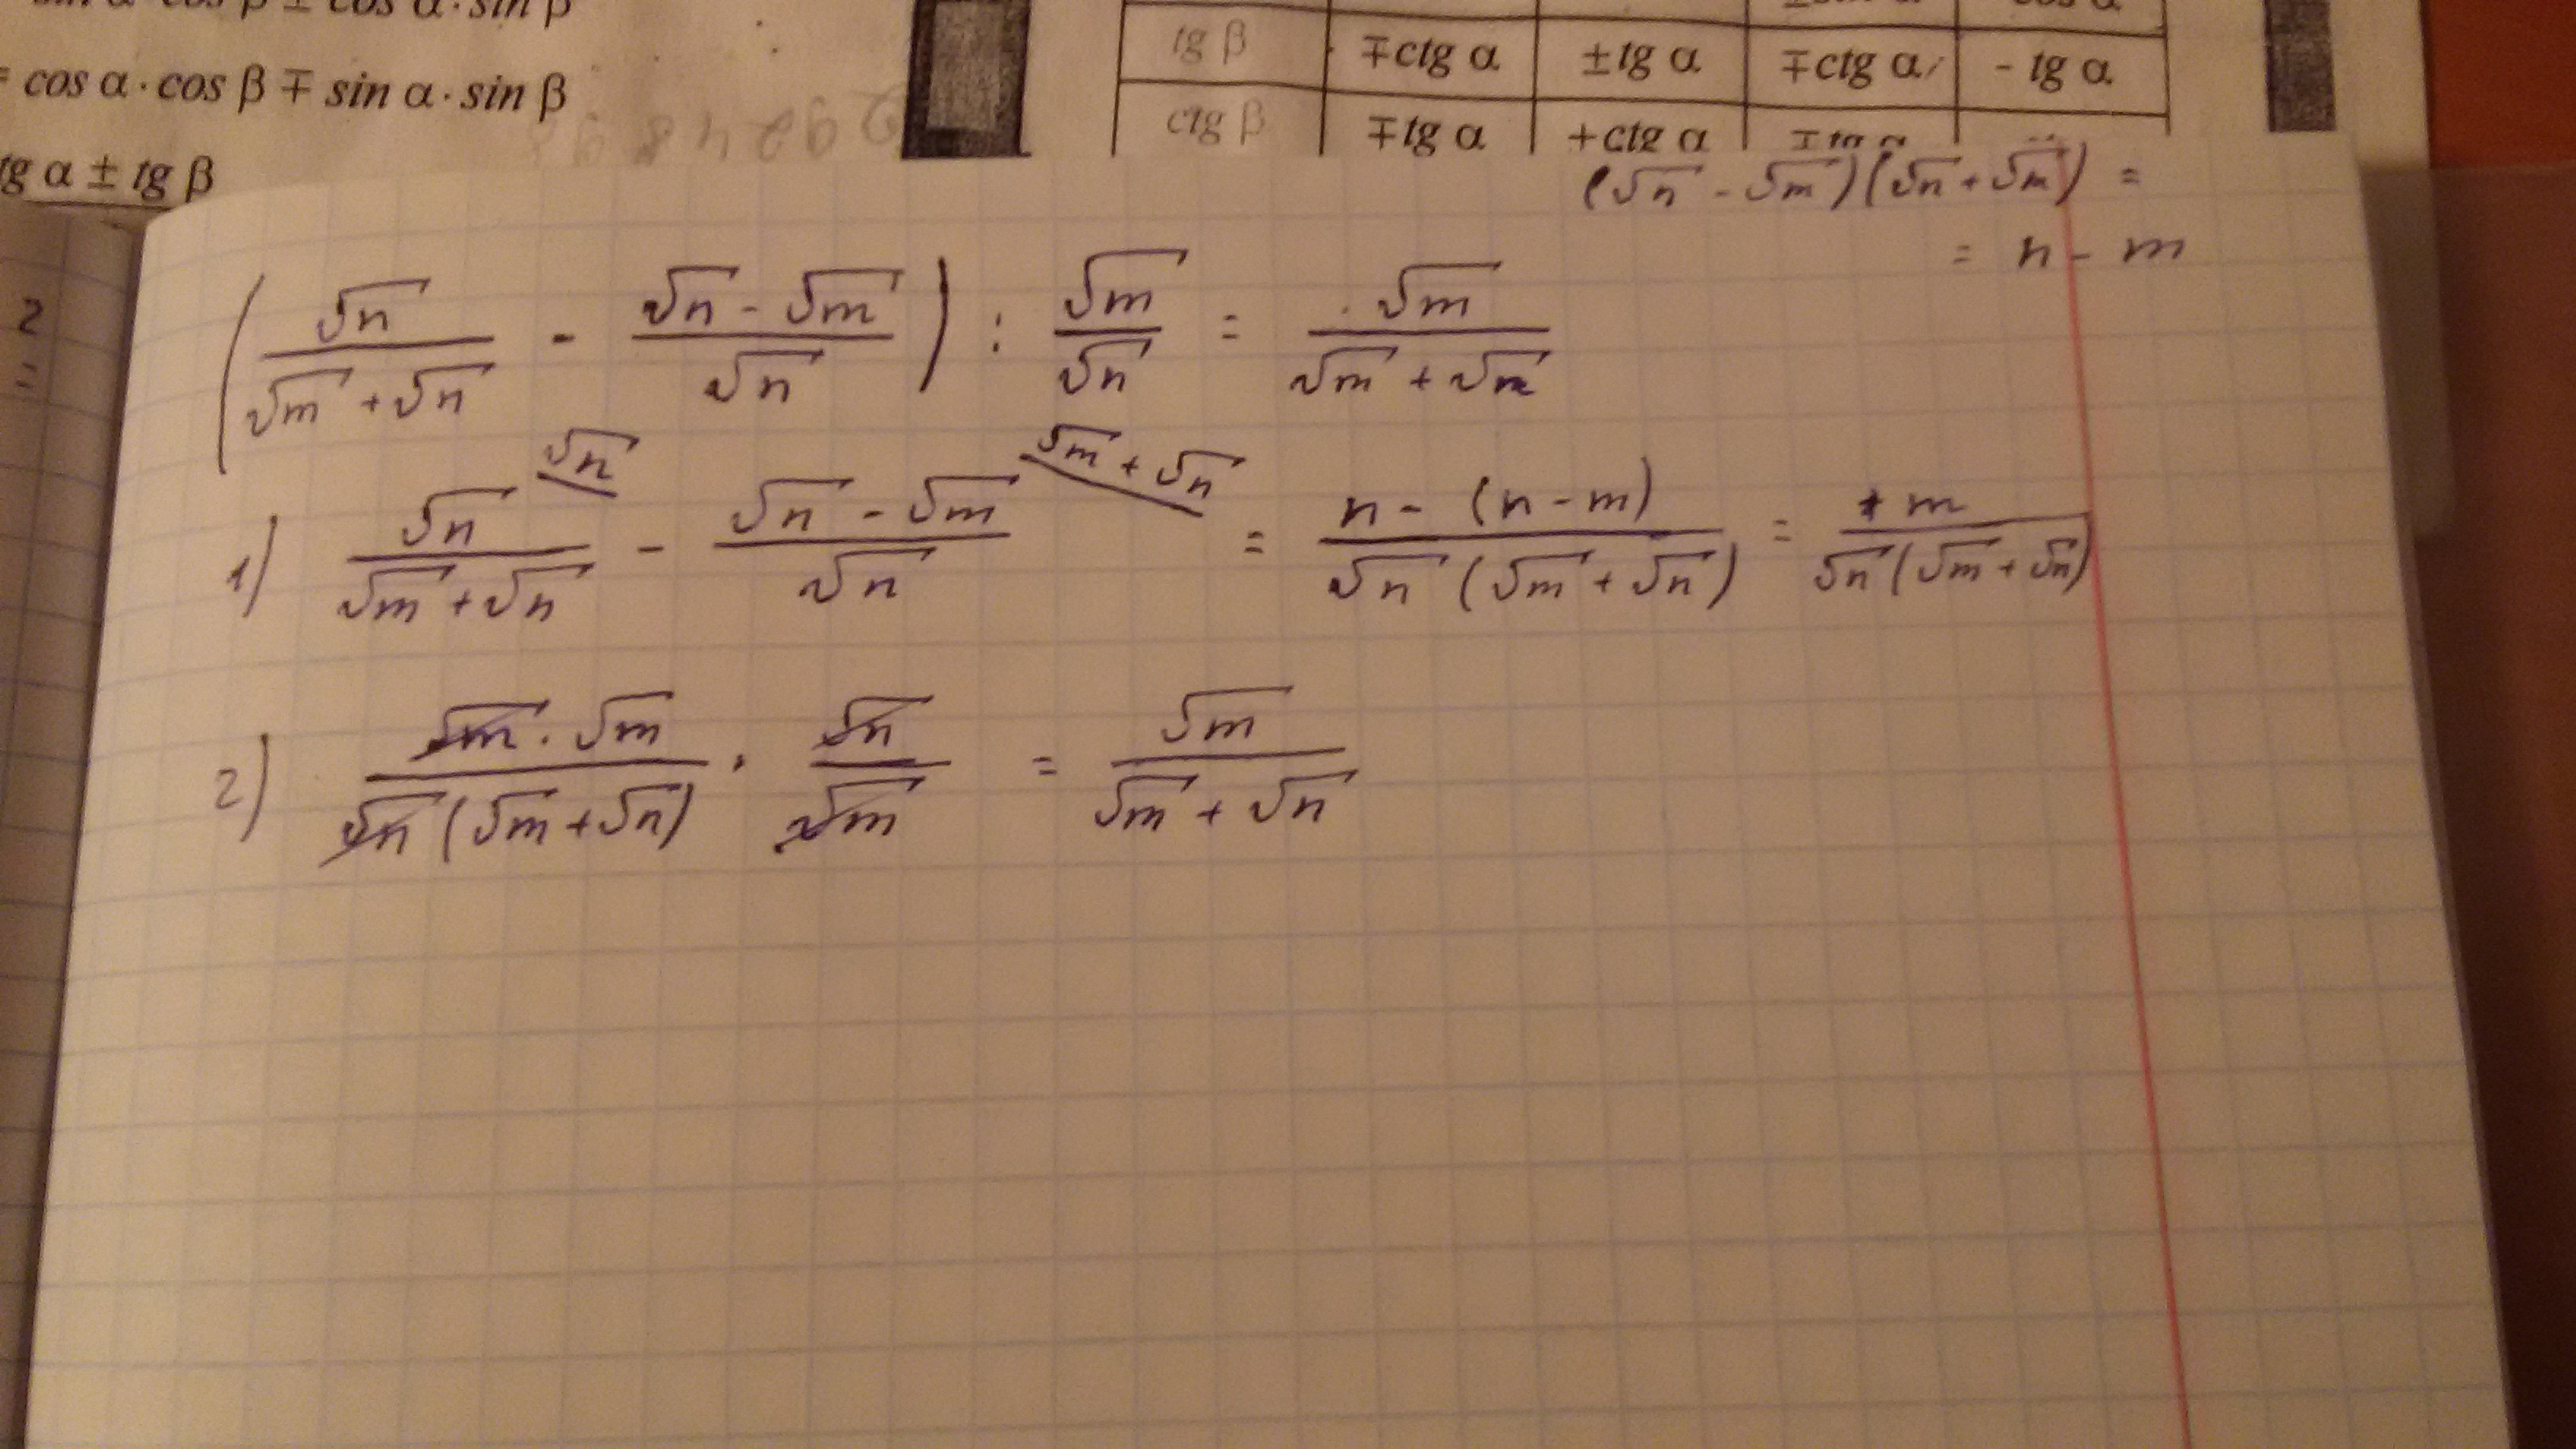 cos α · sin β
= cos α · cos β ∓ sin α · sin β
tg α ± tg β
tg β ∓ctg α ±tg α ∓ctg α - tg α
ctg β ∓tg α +ctg α
(√n - √m)(√n + √m) =
= n - m
2
(√n/(√m + √n) - (√n - √m)/√n) : √m/√n = √m/(√m + √m)
1) √n/(√m + √n) ^√n - (√n - √m)/√n ^√m + √n = (n - (n - m))/(√n (√m + √n)) = + m/(√n (√m + √n))
2) (√m · √m)/(√n (√m + √n)) · √n/√m = √m/(√m + √n)